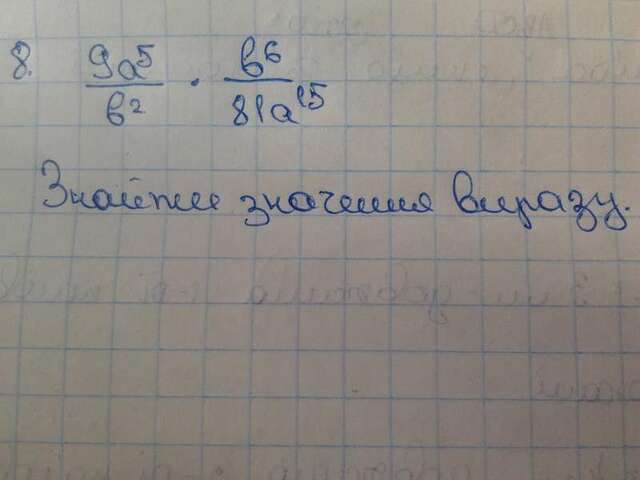 8. 9a⁵/b² · b⁶/81a¹⁵
Знайти значення виразу.